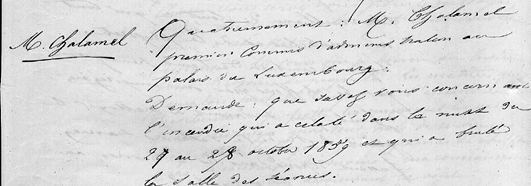 M. Chalamel
Quatrièmement : M. Chalamel
premier Commis d'administration au
palais du Luxembourg.
Demande : que savez vous concernant
l'incendie qui a éclaté dans la nuit du
27 au 28 octobre 1859 et qui a brulé
la Salle des séances.